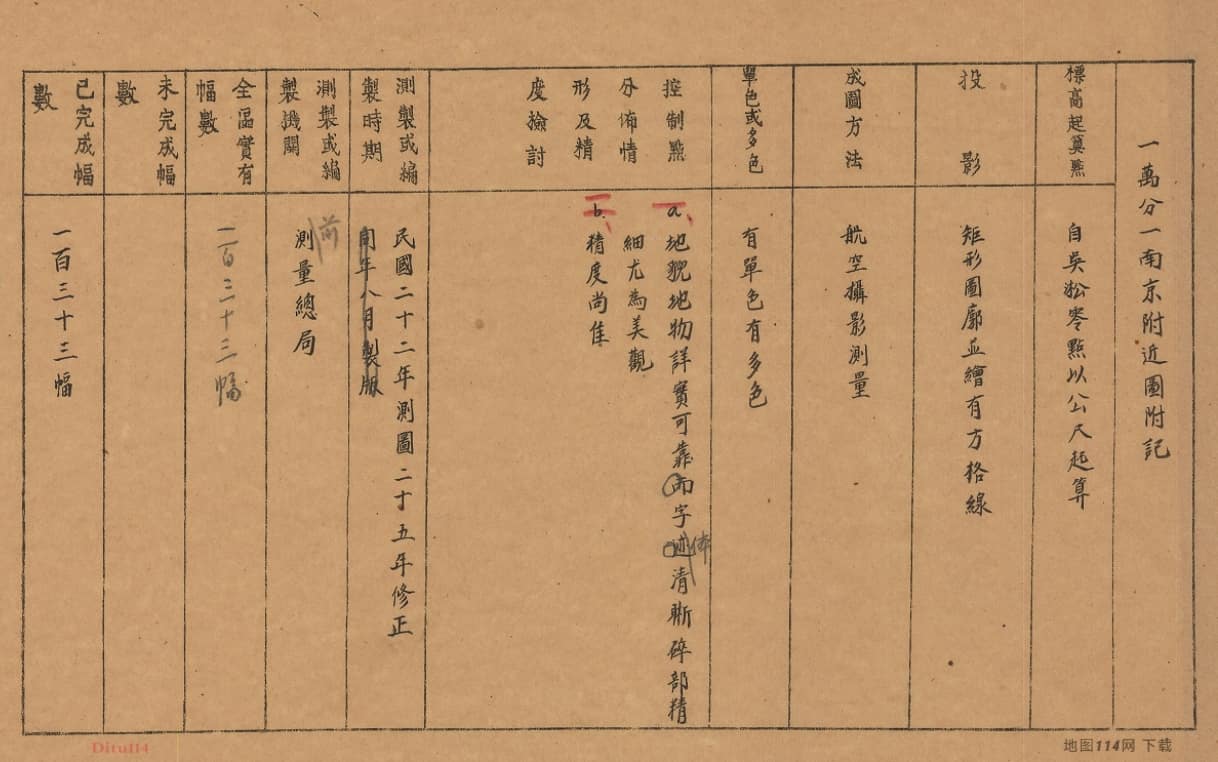 一萬分一南京附近圖附記
標高起算點
自吳淞零點以公尺起算
投影
矩形圖廓並繪有方格線
成圖方法
航空攝影測量
單色或多色
有單色有多色
控制點
分佈情
形及精
度檢討
一、
a.地貌地物詳實可靠而字迹清晰碎部精
体
細尤為美觀
二、
b.精度尚佳
測製或編
製時期
民國二十二年測圖二十五年修正
同年八月製版
測製或編
製機關
前
測量總局
全區實有
幅數
一百三十三幅
未完成幅
數
已完成幅
數
一百三十三幅
Ditu114
地图114网 下载